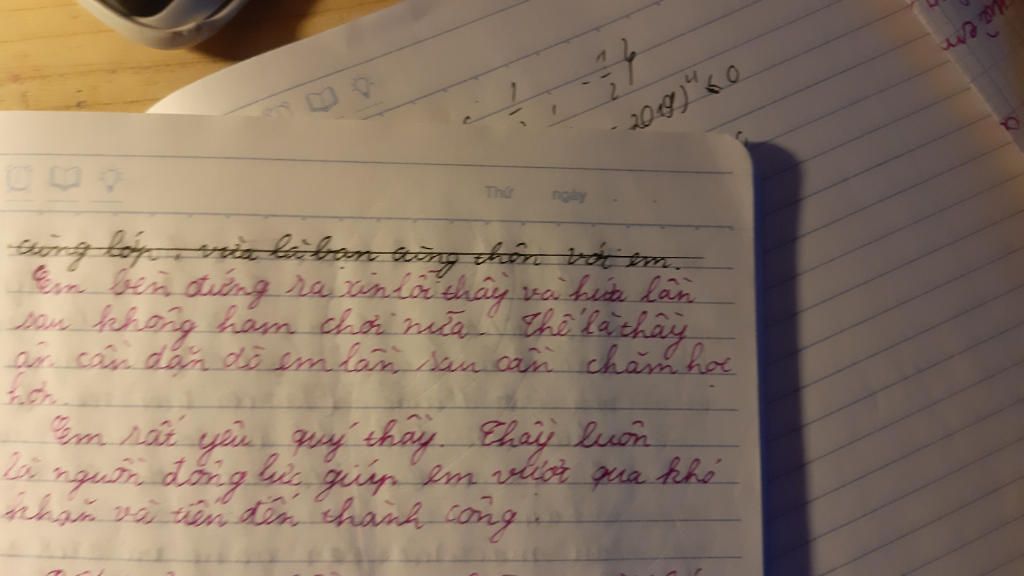 Thứ ngày
cùng lớp, vừa là bạn cùng thôn với em.
Em bèn đứng ra xin lỗi thầy và hứa lần
sau không ham chơi nữa. Thế là thầy
ân cần dặn dò em lần sau cần chăm học
hơn.
Em rất yêu quý thầy. Thầy luôn
là nguồn động lực giúp em vượt qua khó
khăn và tiến đến thành công.